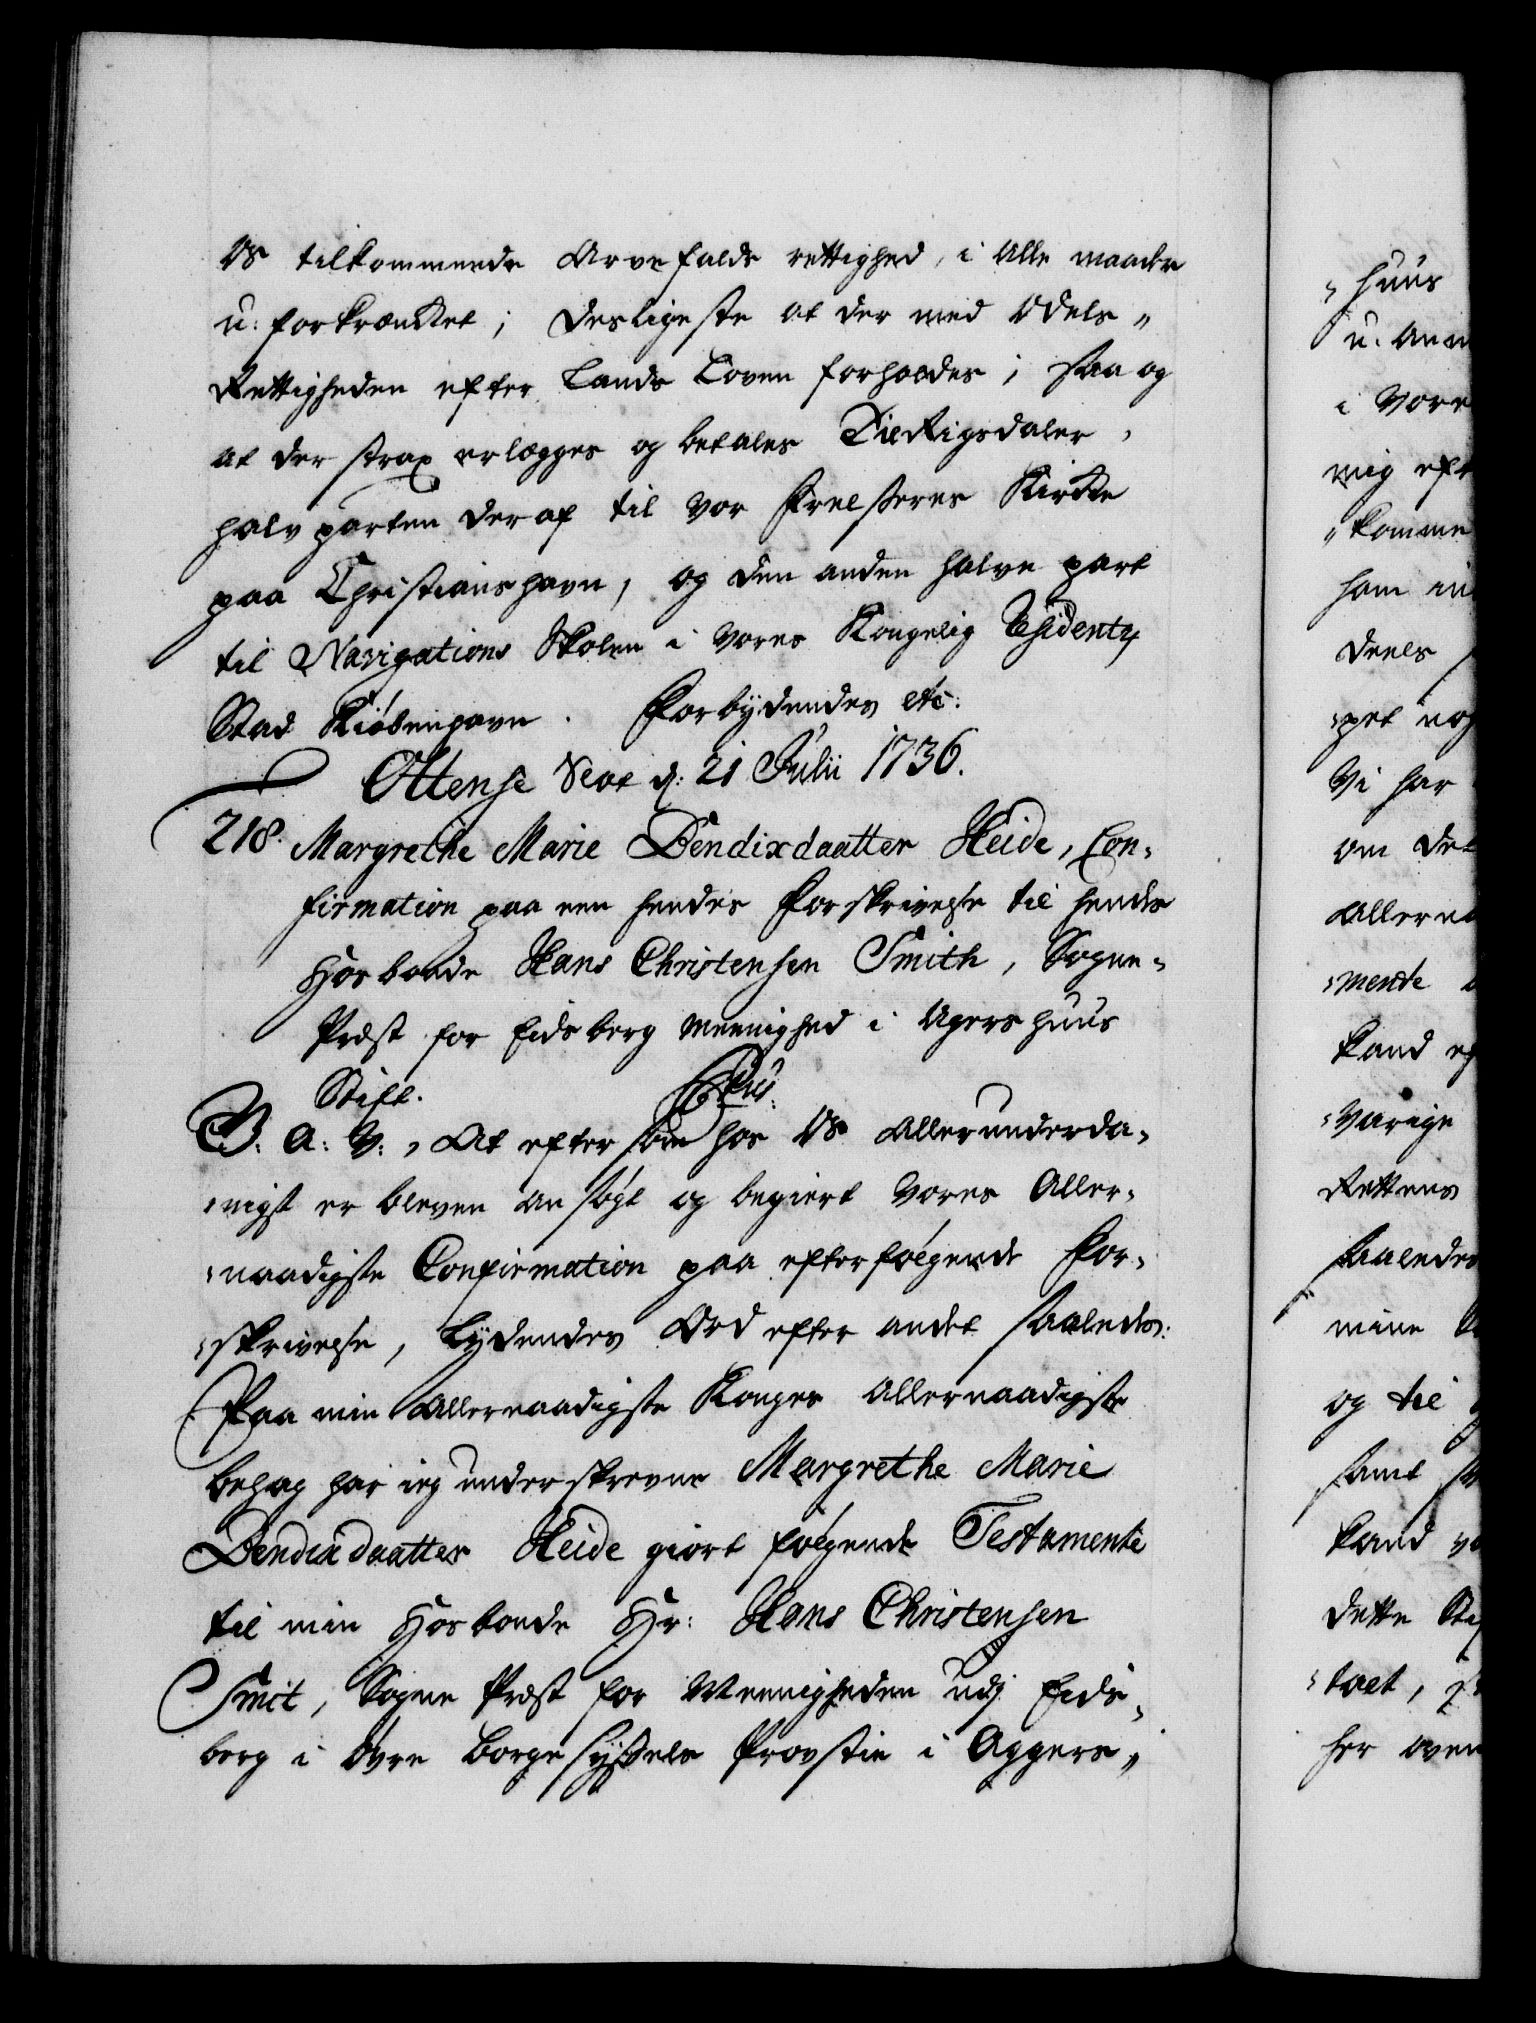 Os tilkommende Arvefalds rettighed, i Alle maader
u: forkrænket; Desligeste at der med Odels„
Rettigheden efter Lands Loven forholdes; saa og
at der strax erlægges og betales Tie Rigsdaler,
halv parten der af til Vor Frelseres Kirke
paa Christianshavn, og den anden halve part
til Navigations Skolen i Vores Kongelig Residentz
Stad Kiøbenhavn. Forbydendes etc:
Ottense Slot d: 21 Julii 1736.
218. Margrethe Marie Bendixdaatter Heide, Con„
firmation paa een hendes Forskrivelse til hendes
Hosbonde Hans Christensen Smith, Sogne„
Præst for Eidsberg Meenighed i Agershuus
Stift.
G: A: V:, At eftersom hos Os Allerunderda„
„nigst er bleven ansøgt og begiert Vores Aller„
„naadigste Confirmation paa efterfølgende For„
„skrivelse, Lydendes Ord efter andet saaledes:
Paa min Allernaadigste Konges Allernaadigste
behag har ieg underskrevne Margrethe Marie
Bendixdaatter Heide giort følgende Testamente
til min Hosbonde Hr: Hans Christensen
Smit, Sogne Præst for Meenigheden udj Eids„
berg i Øvre Borge Syssels Provstie i Aggers„
„huus
u. ann
i Vore
mig eft
„komme
ham in
Deels
„pet nog
Vi har
om Det
Allerna
„mente
kand
„varige
Rettens
saaledes
mine
og til
samt
kand
Dette
„taet,
her oven